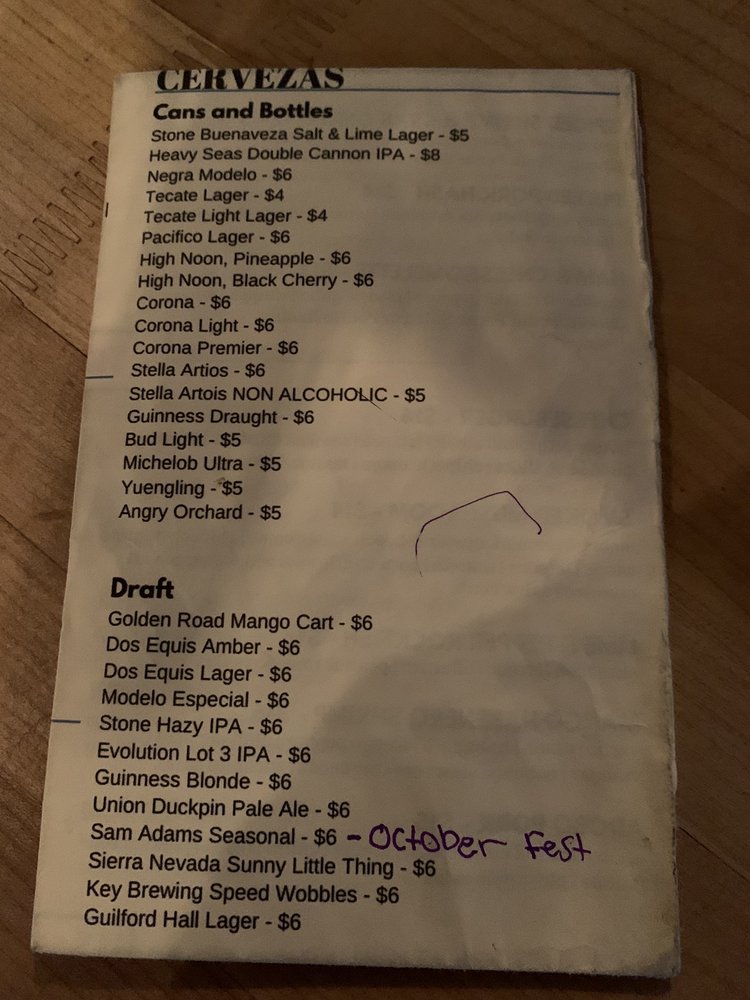 CERVEZAS
Cans and Bottles
Stone Buenaveza Salt & Lime Lager - $5
Heavy Seas Double Cannon IPA - $8
Negra Modelo - $6
Tecate Lager - $4
Tecate Light Lager - $4
Pacifico Lager - $6
High Noon, Pineapple - $6
High Noon, Black Cherry - $6
Corona - $6
Corona Light - $6
Corona Premier - $6
Stella Artios - $6
Stella Artois NON ALCOHOLIC - $5
Guinness Draught - $6
Bud Light - $5
Michelob Ultra - $5
Yuengling - $5
Angry Orchard - $5
Draft
Golden Road Mango Cart - $6
Dos Equis Amber - $6
Dos Equis Lager - $6
Modelo Especial - $6
Stone Hazy IPA - $6
Evolution Lot 3 IPA - $6
Guinness Blonde - $6
Union Duckpin Pale Ale - $6
Sam Adams Seasonal - $6 - October Fest
Sierra Nevada Sunny Little Thing - $6
Key Brewing Speed Wobbles - $6
Guilford Hall Lager - $6